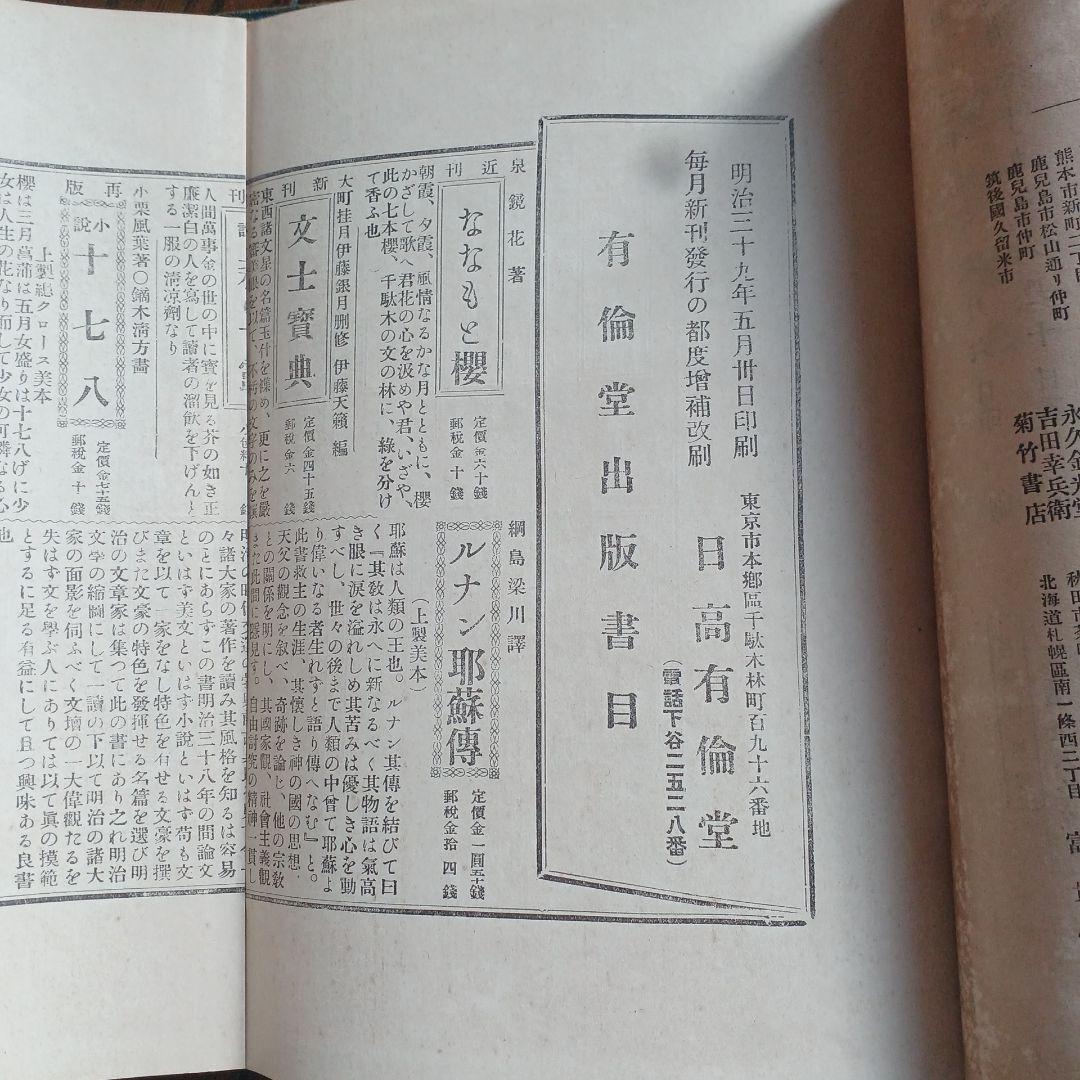 熊本市新町二丁目
鹿兒島市松山通リ仲町
鹿兒島市仲町
筑後國久留米市
永久金光堂
吉田幸兵衛
菊竹書店
北海道札幌區南一條西二丁目
富
明治三十九年五月卅日印刷
每月新刊發行の都度增補改刷
有倫堂出版書目
東京市本鄕區千駄木林町百九十六番地
日高有倫堂
(電話下谷二五二八番)
泉鏡花著
近刊
ななもと櫻
定價金六十錢
郵税金十錢
朝霞、夕霞、風情なるかな月とともに、櫻
かざして歌へ君花の心を汲めや君、いざや、
此の七本櫻、千駄木の文の林に、綠を分け
て香ふ也
大町桂月伊藤銀月刪修 伊藤天籟編
新刊
文士寶典
定價金四十五錢
郵税金六錢
東西諸文星の名篇玉什を採め、更に之を嚴
綱島梁川譯
ルナン耶蘇傳
(上製美本)
定價金一圓五十錢
郵税金拾四錢
耶蘇は人類の王也。ルナン其傳を結びて曰
く『其敎は永へに新なるべく其物語は氣高
き眼に淚を溢れしめ其苦みは優しき心を動
すべし、世々の後まで人類の中曾て耶蘇よ
り偉いなる者生れずと語り傳へなむ』と。
此書救主の生涯、其懷しき神の國の思想、
天父の觀念を敘べ、奇跡を論じ、他の宗敎
との關係を明にし、其國家觀、社會主義觀
また此間に隱見す。自由討究の精神一貫し
刊
人間萬事金の世の中に寳を見る芥の如き正
廉潔白の人を寫して讀者の溜飮を下げんと
する一服の淸凉劑なり
小栗風葉著〇鏑木淸方畵
再版
小說
十七八
上製總クロース美本
定價金七十五錢
郵税金十錢
櫻は三月菖蒲は五月女盛りは十七八げに少
女は人生の花なり而して少女の可憐なる心
々諸大家の著作を讀み其風格を知るは容易
のことにあらずこの書明治三十八年の間論文
といはず美文といはず小說といはず苟も文
章を以て一家をなし特色を有せる文豪を撰
びまた文豪の特色を發揮せる名篇を選び明
治の文章家は集つて此の書にあり之れ明治
文學の繪圖にして一讀の下以て明治の諸大
家の面影を伺ふべく文壇の一大偉觀たるを
失はず文を學ぶ人にありては以て眞の摸範
とするに足る有益にして且つ興味ある良書
也